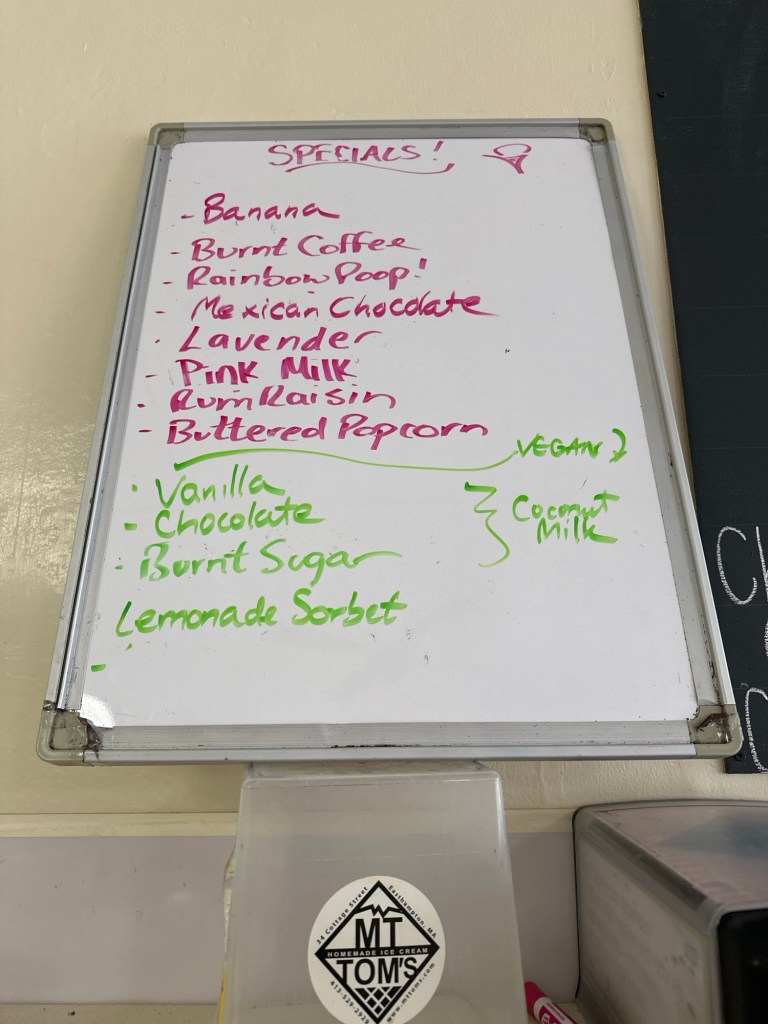 SPECIALS!
- Banana
- Burnt Coffee
- Rainbow Poop!
- Mexican Chocolate
· Lavender
- Pink Milk
- Rum Raisin
- Buttered Popcorn
VEGAN
· Vanilla
- Chocolate
· Burnt Sugar
Coconut
Milk
Lemonade Sorbet
-
34 Cottage Street
Easthampton, MA
MT
HOMEMADE ICE CREAM
TOM'S
www.mttoms.com